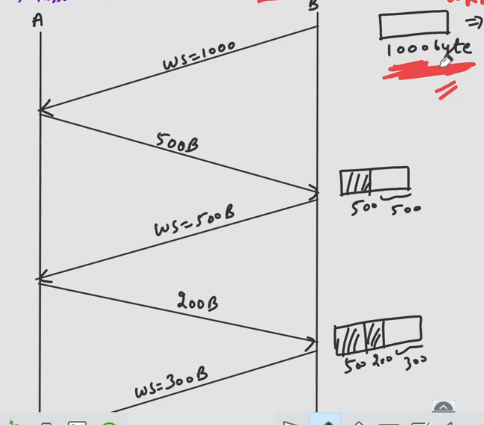 A
B
1000byte
WS=1000
500B
500 500
WS=500B
200B
500 200 300
WS=300B